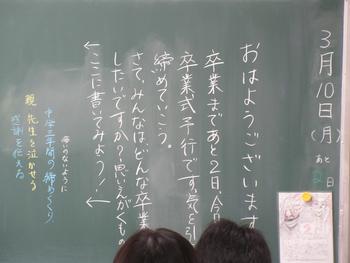 3月10日(月)
あと
2日
おはようございます
卒業まであと2日、今日
卒業式予行です。気を引
締めていこう。
さて、みんなはどんな卒業
したいですか?思いえがくもの
←ここに書いてみよう!←
悔いのないように
中学三年間の締めくくり
親、先生を泣かせる
感謝を伝える